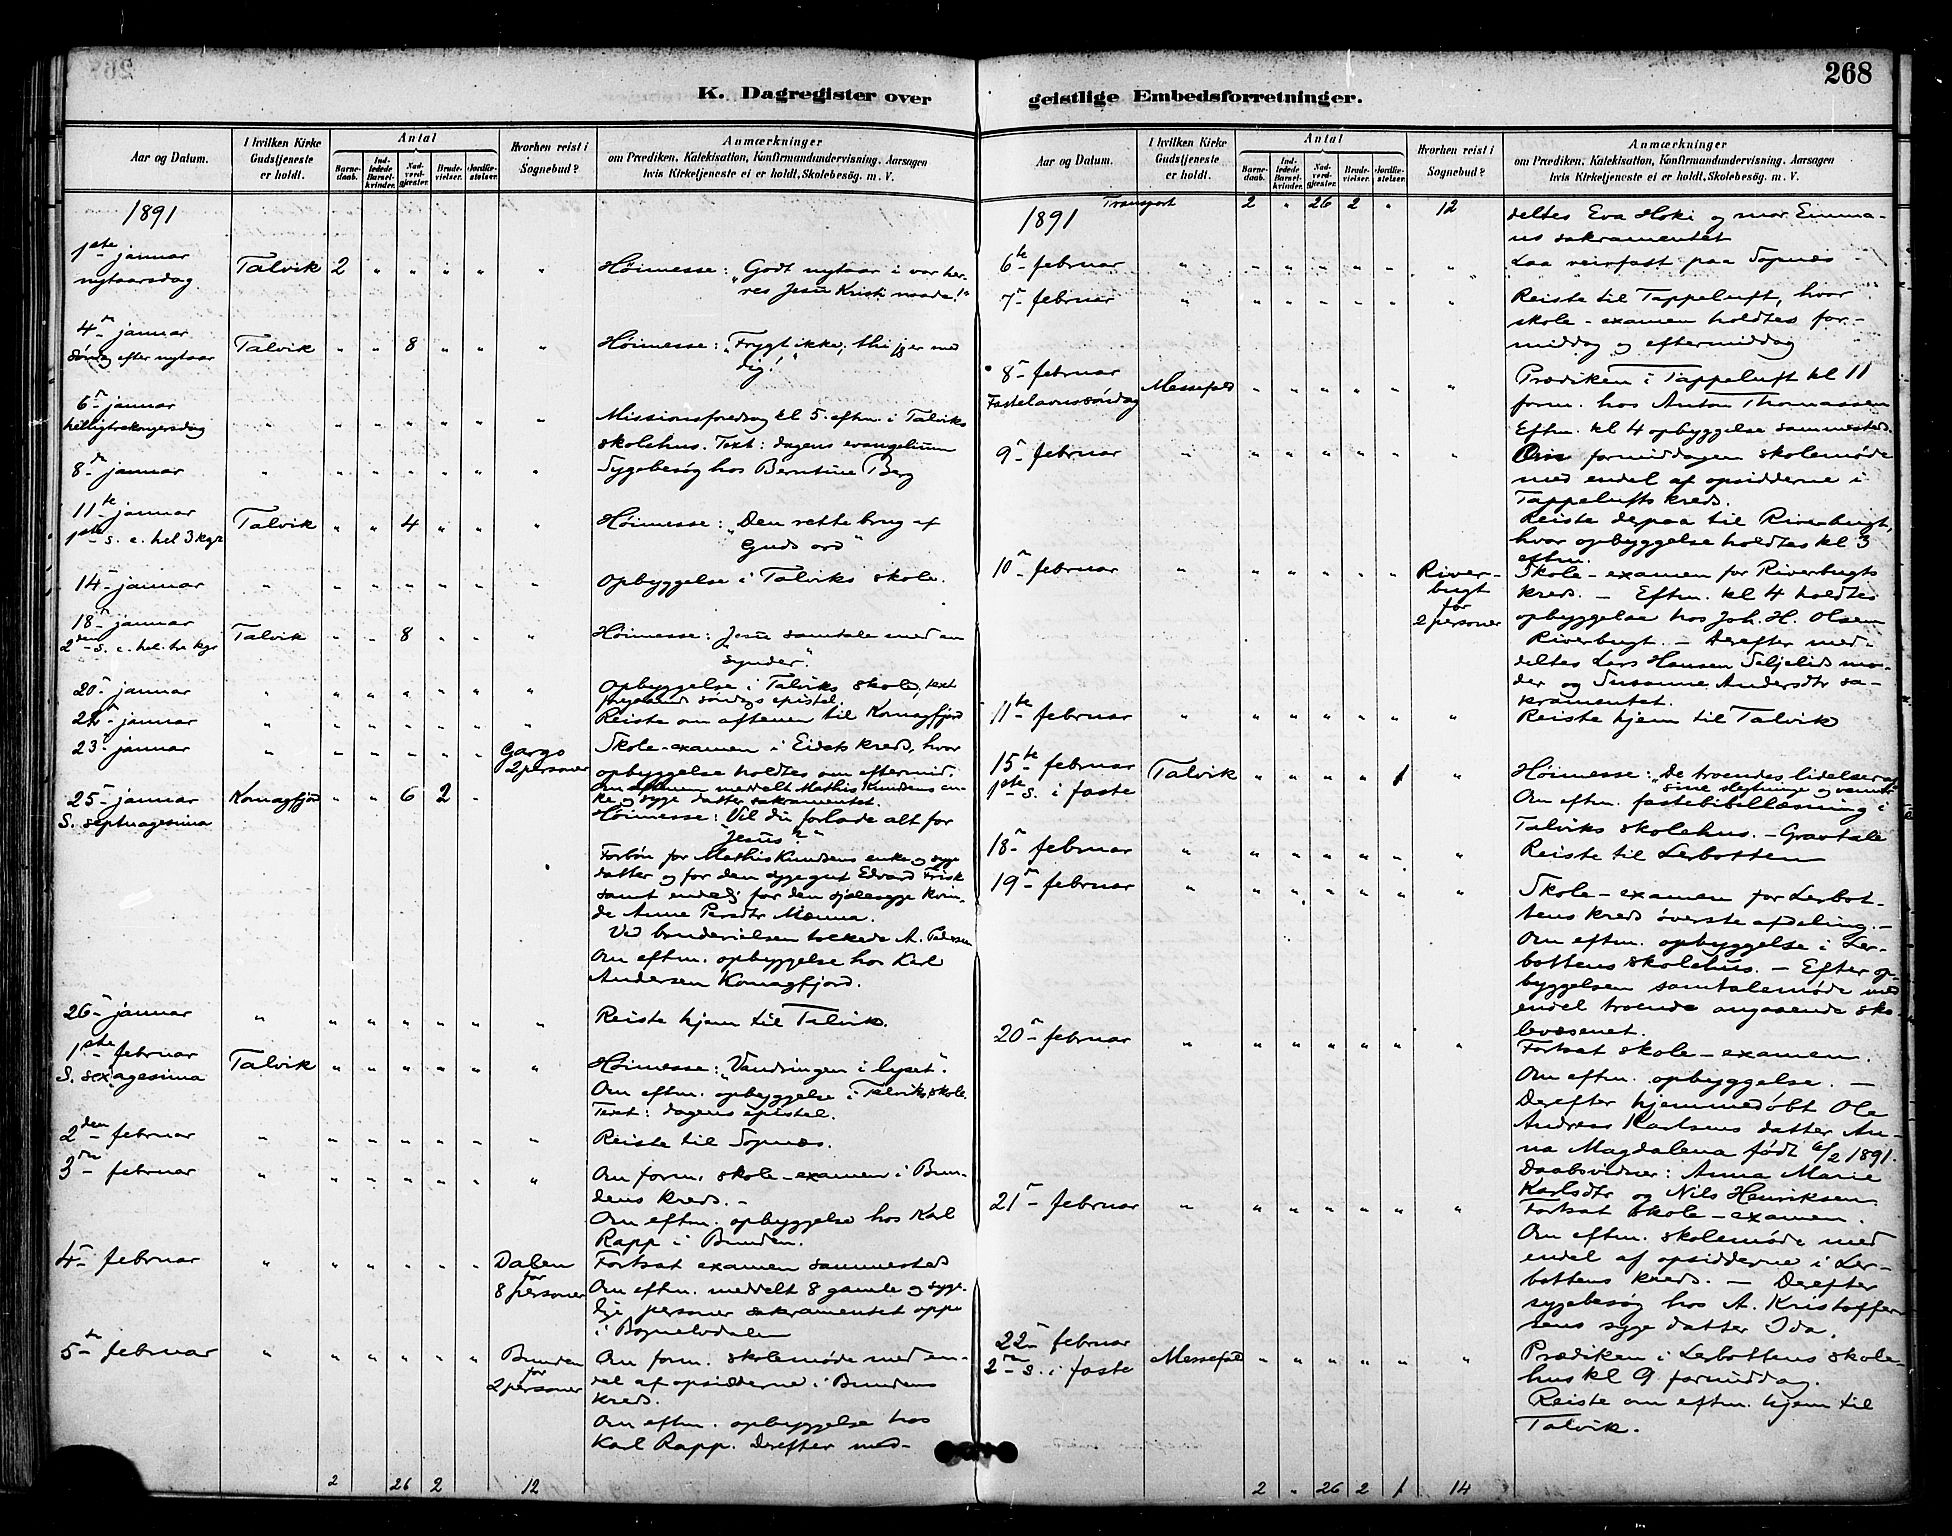 268
K. Dagregister over
geistlige Embedsforretninger.
Aar og Datum.
I hvilken Kirke Gudstjeneste er holdt.
Antal
Barnedaab.
Indledede Barselkvinder.
Nadverdgjester.
Brudevielser.
Jordfæstelser.
Hvorhen reist i Sognebud?
Anmærkninger
om Prædiken, Katekisation, Konfirmandundervisning, Aarsagen
hvis Kirketjeneste ei er holdt, Skolebesøg. m. V.
1891
1ste januar nytaarsdag Talvik 2 " " " " " Høimesse: "Godt nytaar i vor her-
res Jesu Kristi naade!"
4de januar Søndag efter nytaar Talvik " " 8 " " " Høimesse: "Frygt ikke, thi jeg er med
dig!"
6te januar helligtrekongersdag " " " " " " " Missionsforedrag kl 5 eftm. i Talviks
skolehus. Text: dagens evangelium
8de januar " " " " " " " Sygebesøg hos Berntine Berg
11te januar 1ste s. e. hel 3 kgr Talvik " " 4 " " " Høimesse: "Den rette brug af
Guds ord"
14- januar " " " " " " " Opbyggelse i Talviks skole.
18- januar 2den s. e. hel. tre kgr Talvik " " 8 " " " Høimesse: "Jesu samtale med en
synder."
20- januar " " " " " " " Opbyggelse i Talviks skole, text
søndags epistel.
22- januar " " " " " " " Reiste om aftenen til Komagfjord
23- januar " " " " " " Gargo 2 personer Skole-examen i Eidets kreds, hvor
opbyggelse holdtes om eftermid.
meddelt Mathis Knudsens en-
ke og syge datter sakramentet.
25- januar S. septuagesima Komagfjord " " 6 2 " Høimesse: "Vil du forlade alt for
Jesus?"
Forbøn for Mathis Knudsens enke og syge
datter og for den sygegut Edvard Frisk
samt endelig for den sjælesyge kvin-
de Anne Persdtr Manna.
Ved brudevielsen tolkede A. Pedersen
Om eftm. opbyggelse hos Karl
Andersen Komagfjord.
26- januar " " " " " " " Reiste hjem til Talvik.
1ste februar S. sexagesima Talvik " " " " " " Høimesse: "Vandringen i lyset".
Om eftm. opbyggelse i Talviks skole.
Text: dagens epistel.
2den februar " " " " " " " Reiste til Sopnæs.
3die februar " " " " " " " Om form. skole-examen i Bun-
dens kreds. -
Om eftm. opbyggelse hos Karl
Rapp i Bunden.
4- februar " " " " " " Dalen for 8 personer Fortsat examen sammesteds
Om eftm. meddelt 8 gamle og syge-
lige personer sakramentet oppe
i Bognelvdalen
5te februar " " " " " " Bunden for 2 personer Om form. skolemøde med en-
del af opsidderne i Bundens
kreds.
Om eftm. opbyggelse hos
Karl Rapp. Derefter med-
2 26 2 12
Aar og Datum.
I hvilken Kirke Gudstjeneste er holdt.
Antal
Barnedaab.
Indledede Barselkvinder.
Nadverdgjester.
Brudevielser.
Jordfæstelser.
Hvorhen reist i Sognebud?
Anmærkninger
om Prædiken, Katekisation, Konfirmandundervisning, Aarsagen
hvis Kirketjeneste ei er holdt, Skolebesøg. m. V.
1891 Transport 2 " 26 2 " 12 deltes Eva Hoki og mor Emma-
us sakramentet
6te februar " " " " " " " Laa veirfast paa Sopnæs
7- februar " " " " " " " Reiste til Tappeluft, hvor
skole-examen holdtes for-
middag og eftermiddag
8- februar Fastelavnssøndag Messefald " " " " " " Prædiken i Tappeluft kl 11
form. hos Anton Thomassen
Eftm. kl 4 opbyggelse sammesteds.
9- februar " " " " " " " Om formiddagen skolemøde
med endel af opsidderne i
Tappelufts kreds.
Reiste derpaa til Riverbugt,
hvor opbyggelse holdtes kl 3
eftm.
10- februar " " " " " " River-bugt for 2 personer Skole-examen for Riverbugts
kreds. - Eftm. kl 4 holdtes
opbyggelse hos Joh. H. Olsen
Riverbugt. - Derefter med-
deltes Lars Hansen Seljelids mo-
der og Susanne Andersdtr sa-
kramentet.
11te februar " " " " " " " Reiste hjem til Talvik
15te februar 1ste s. i faste Talvik " " " " 1 " Høimesse: "De troendes lidelser af
sine slegtninge og venner"
Om eftm. fastebibellæsning i
Talviks skolehus. - Gravtale
18- februar " " " " " " " Reiste til Lerbotten
19- februar " " " " " " " Skole-examen for Lerbot-
tens kreds øverste afdeling. -
Om eftm. opbyggelse i Ler-
bottens skolehus. - Efter op-
byggelsen samtalemøde med
endel troende angaaende sko-
levæsenet.
20- februar " " " " " " " Fortsat skole-examen.
Om eftm. opbyggelse. -
Derefter hjemmedøbt Ole
Andreas Karlsens datter An-
na Magdalena født 6/2 1891.
Daabsvidner: Anna Marie
Karlsdtr og Nils Henriksen
21- februar " " " " " " " Fortsat skole-examen.
Om eftm. skolemøde med
endel af opsidderne i Ler-
bottens kreds. - Derefter
sygebesøg hos A. Kristoffer-
sens syge datter Ida.
22- februar 2den s. i faste Messefald " " " " " " Prædiken i Lerbottens skole-
hus kl 9 formiddag.
Reiste om eftm. hjem til
Talvik.
2 " 26 2 1 14